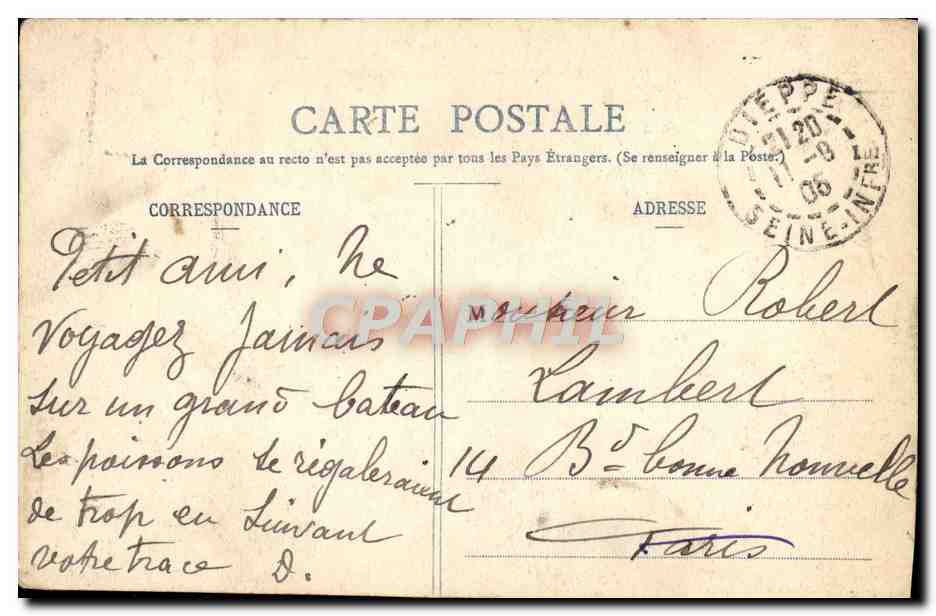 CARTE POSTALE
La Correspondance au recto n'est pas acceptée par tous les Pays Étrangers. (Se renseigner à la Poste.)
CORRESPONDANCE
Petit ami, Ne
voyagez Jamais
sur un grand bateau
Les poissons se régaleraient
de trop en suivant
votre trace D.
ADRESSE
Monsieur Robert
Lambert
14 Bd bonne Nouvelle
Paris
DIEPPE
21 20
11 -8
05
SEINE-INFRE
CPAPHIL